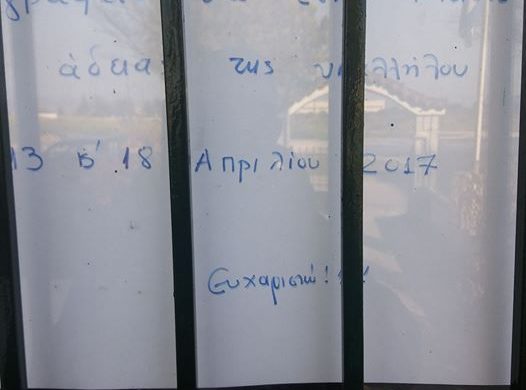 άδεια της υπαλλήλου
13 & 18 Απριλίου 2017
Ευχαριστώ!!!